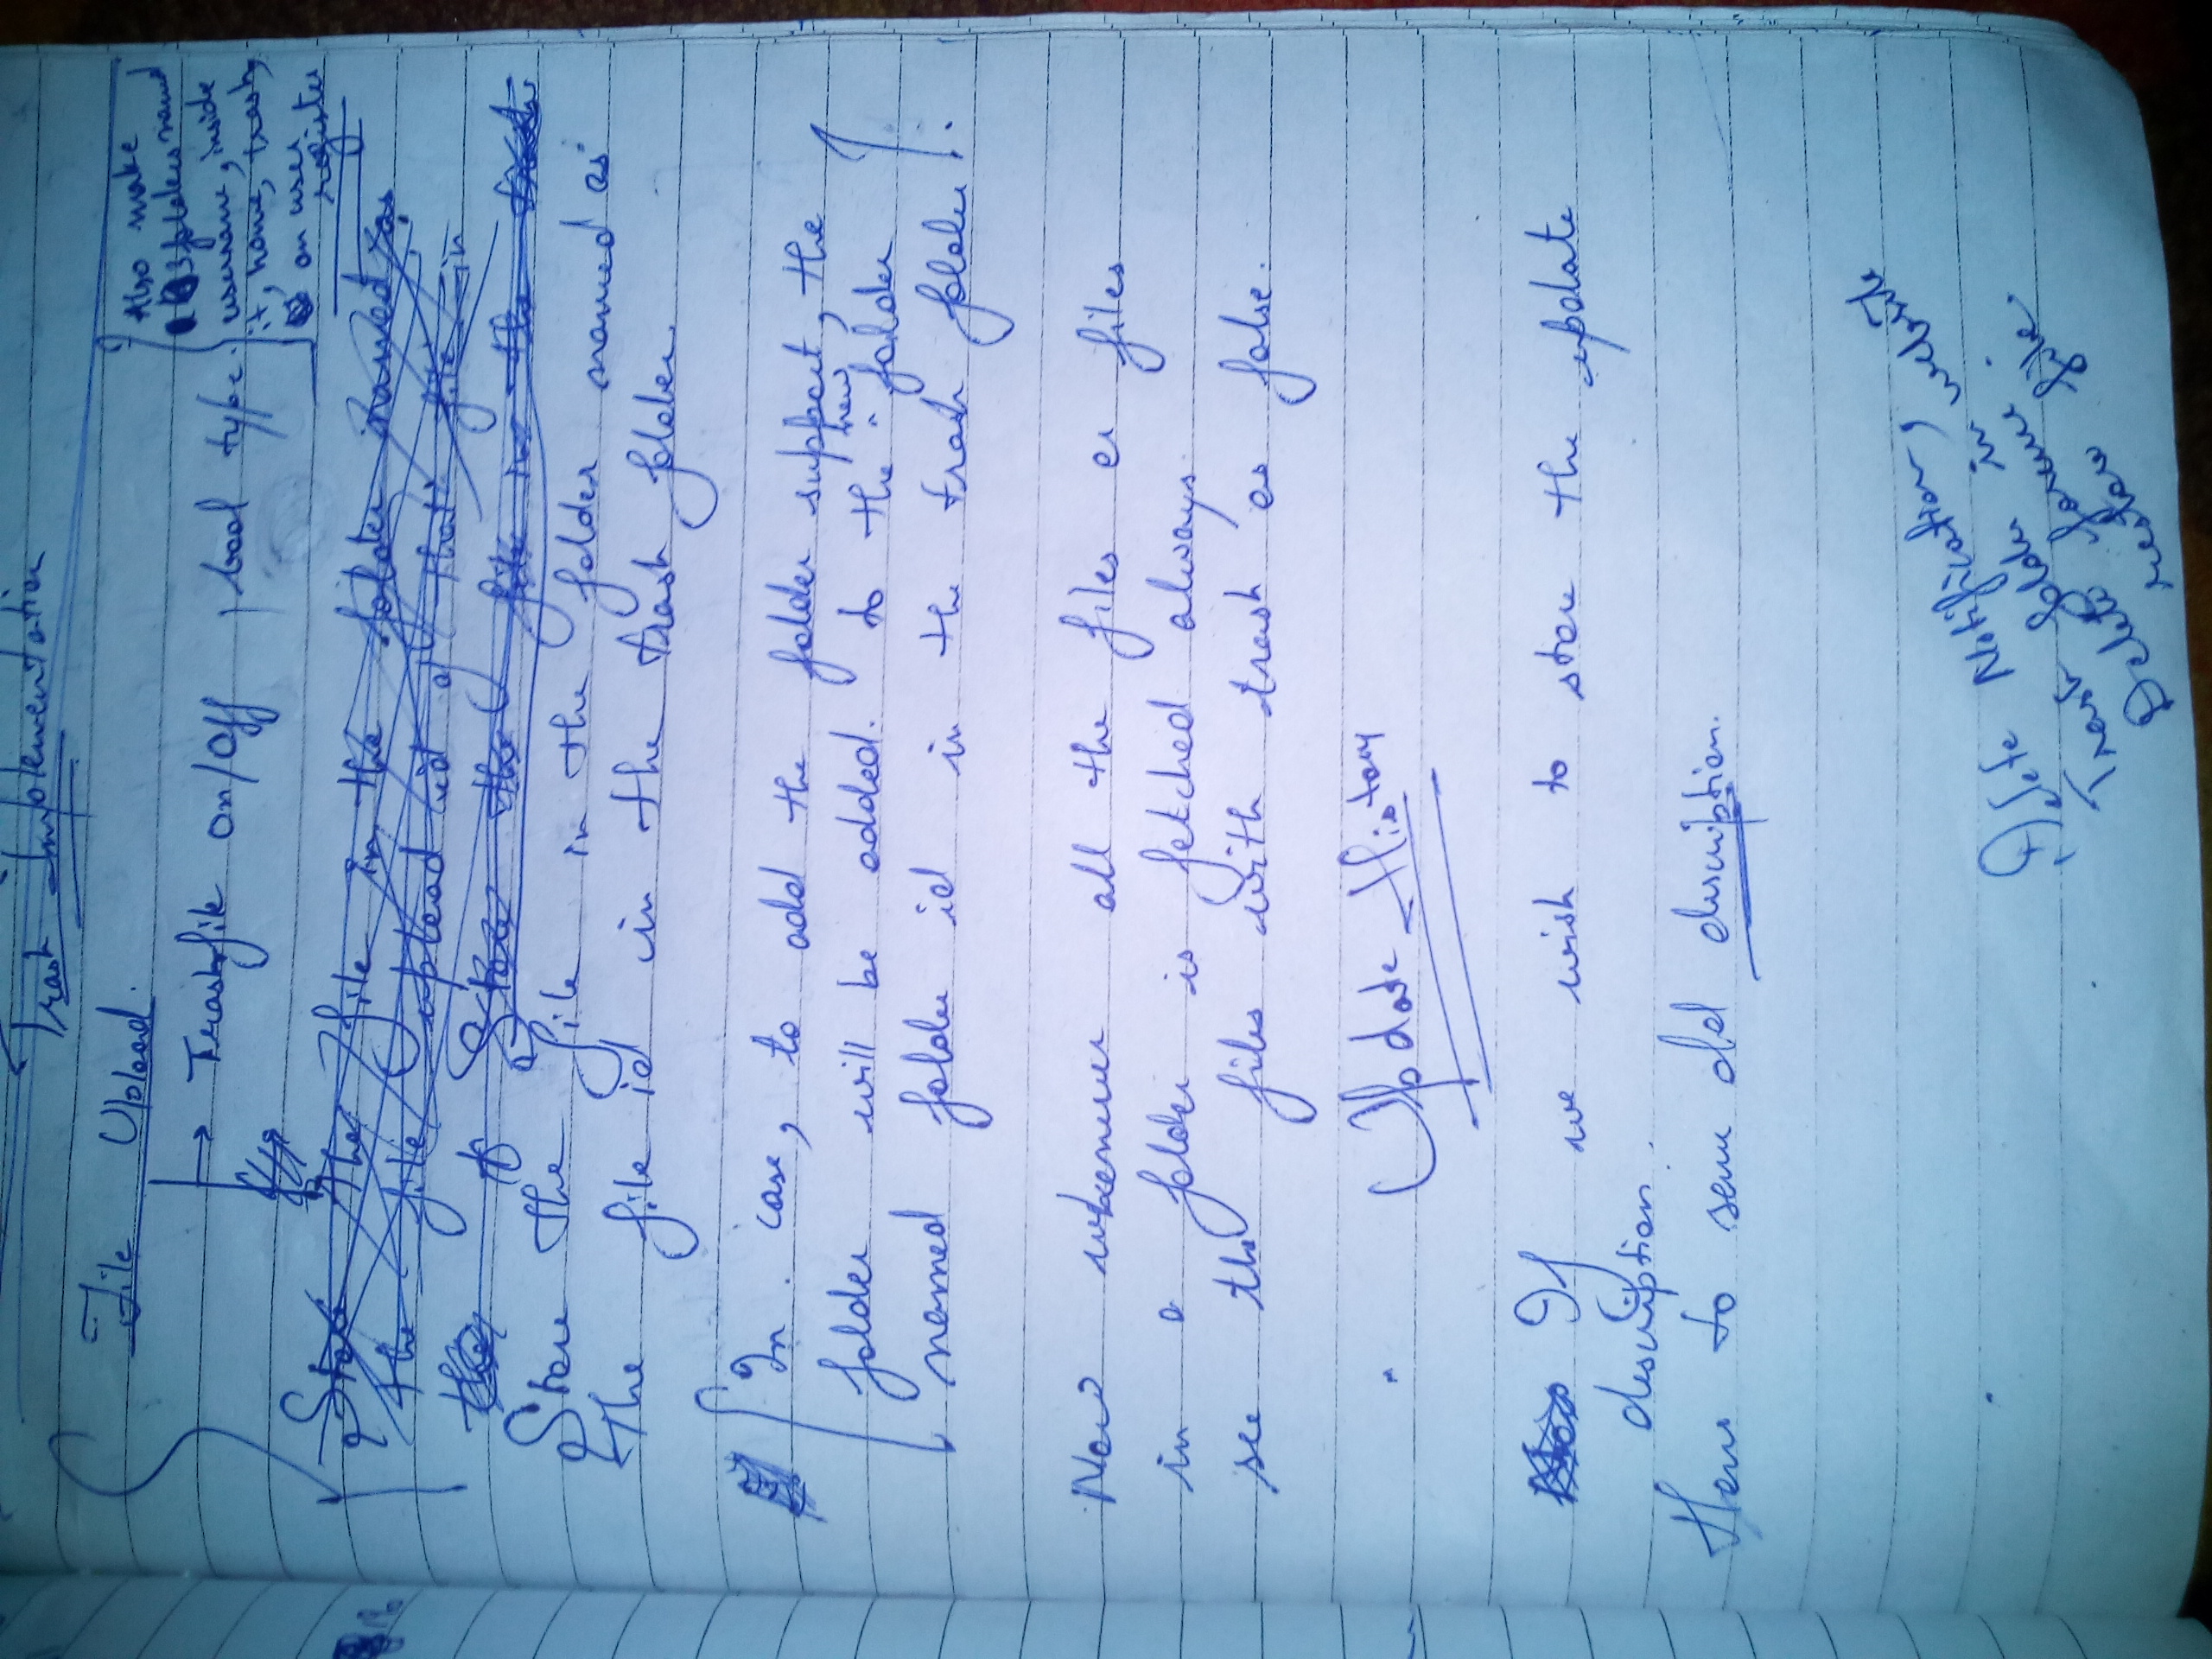 Trash Implementation
File Upload.
Trashfile on/off, bool type.
Also make
3 folders named
username, inside
it, home, trash,
on user
register
Store the file in the folder named as
the file upload id of that file in
the Store the file in the trash
Store the file in the folder named as
The file id in the trash folder.
In case, to add the folder support, the
folder will be added. to the new folder
named folder id in the trash folder.
Now whenever all the files or files
in a folder is fetched always
see the files with trash as false.
Update History
If we wish to store the update
description.
How to save old description.
Delete Notification,
Trash folder in website
Delete forever.
restore file.